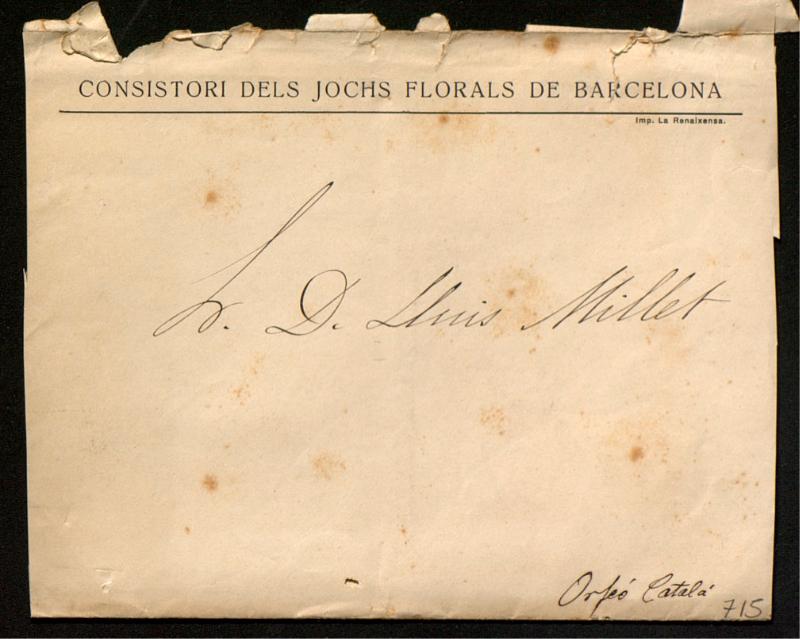 CONSISTORI DELS JOCHS FLORALS DE BARCELONA
Imp. La Renaixensa.
Sr. D. Lluis Millet
Orfeó Catalá
715